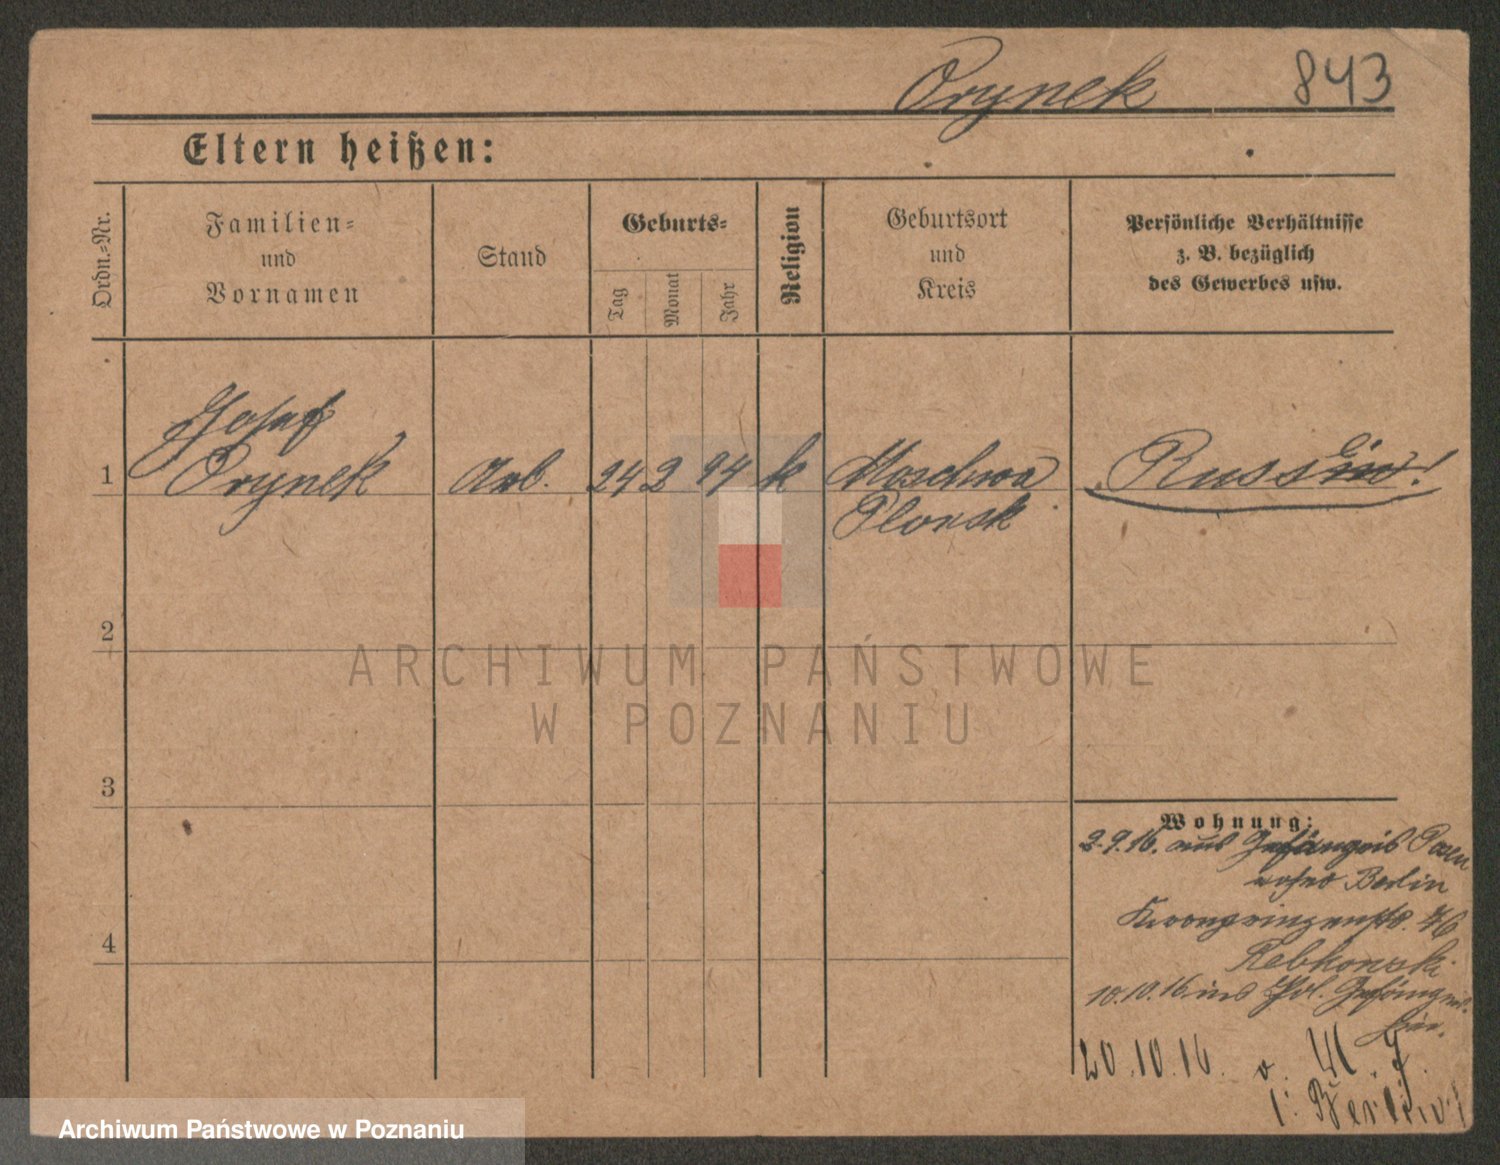 Orynek 843
Eltern heißen:
Ordn.=Nr.
Familien=
und
Vornamen
Stand
Geburts=
Tag
Monat
Jahr
Religion
Geburtsort
und
Kreis
Persönliche Verhältnisse
z. B. bezüglich
des Gewerbes usw.
Josef
1 Orynek Arb. 24 2 94 k Moschwa Russin!
Plonsk
2
ARCHIWUM PAŃSTWOWE
W POZNANIU
3
Wohnung:
2.9.16. aus Gefängnis Posen
Berlin
Kronprinzenstr. 46
Rebkowski
10.10.16 ins Gefängnis
20.10.16.
Archiwum Państwowe w Poznaniu
4